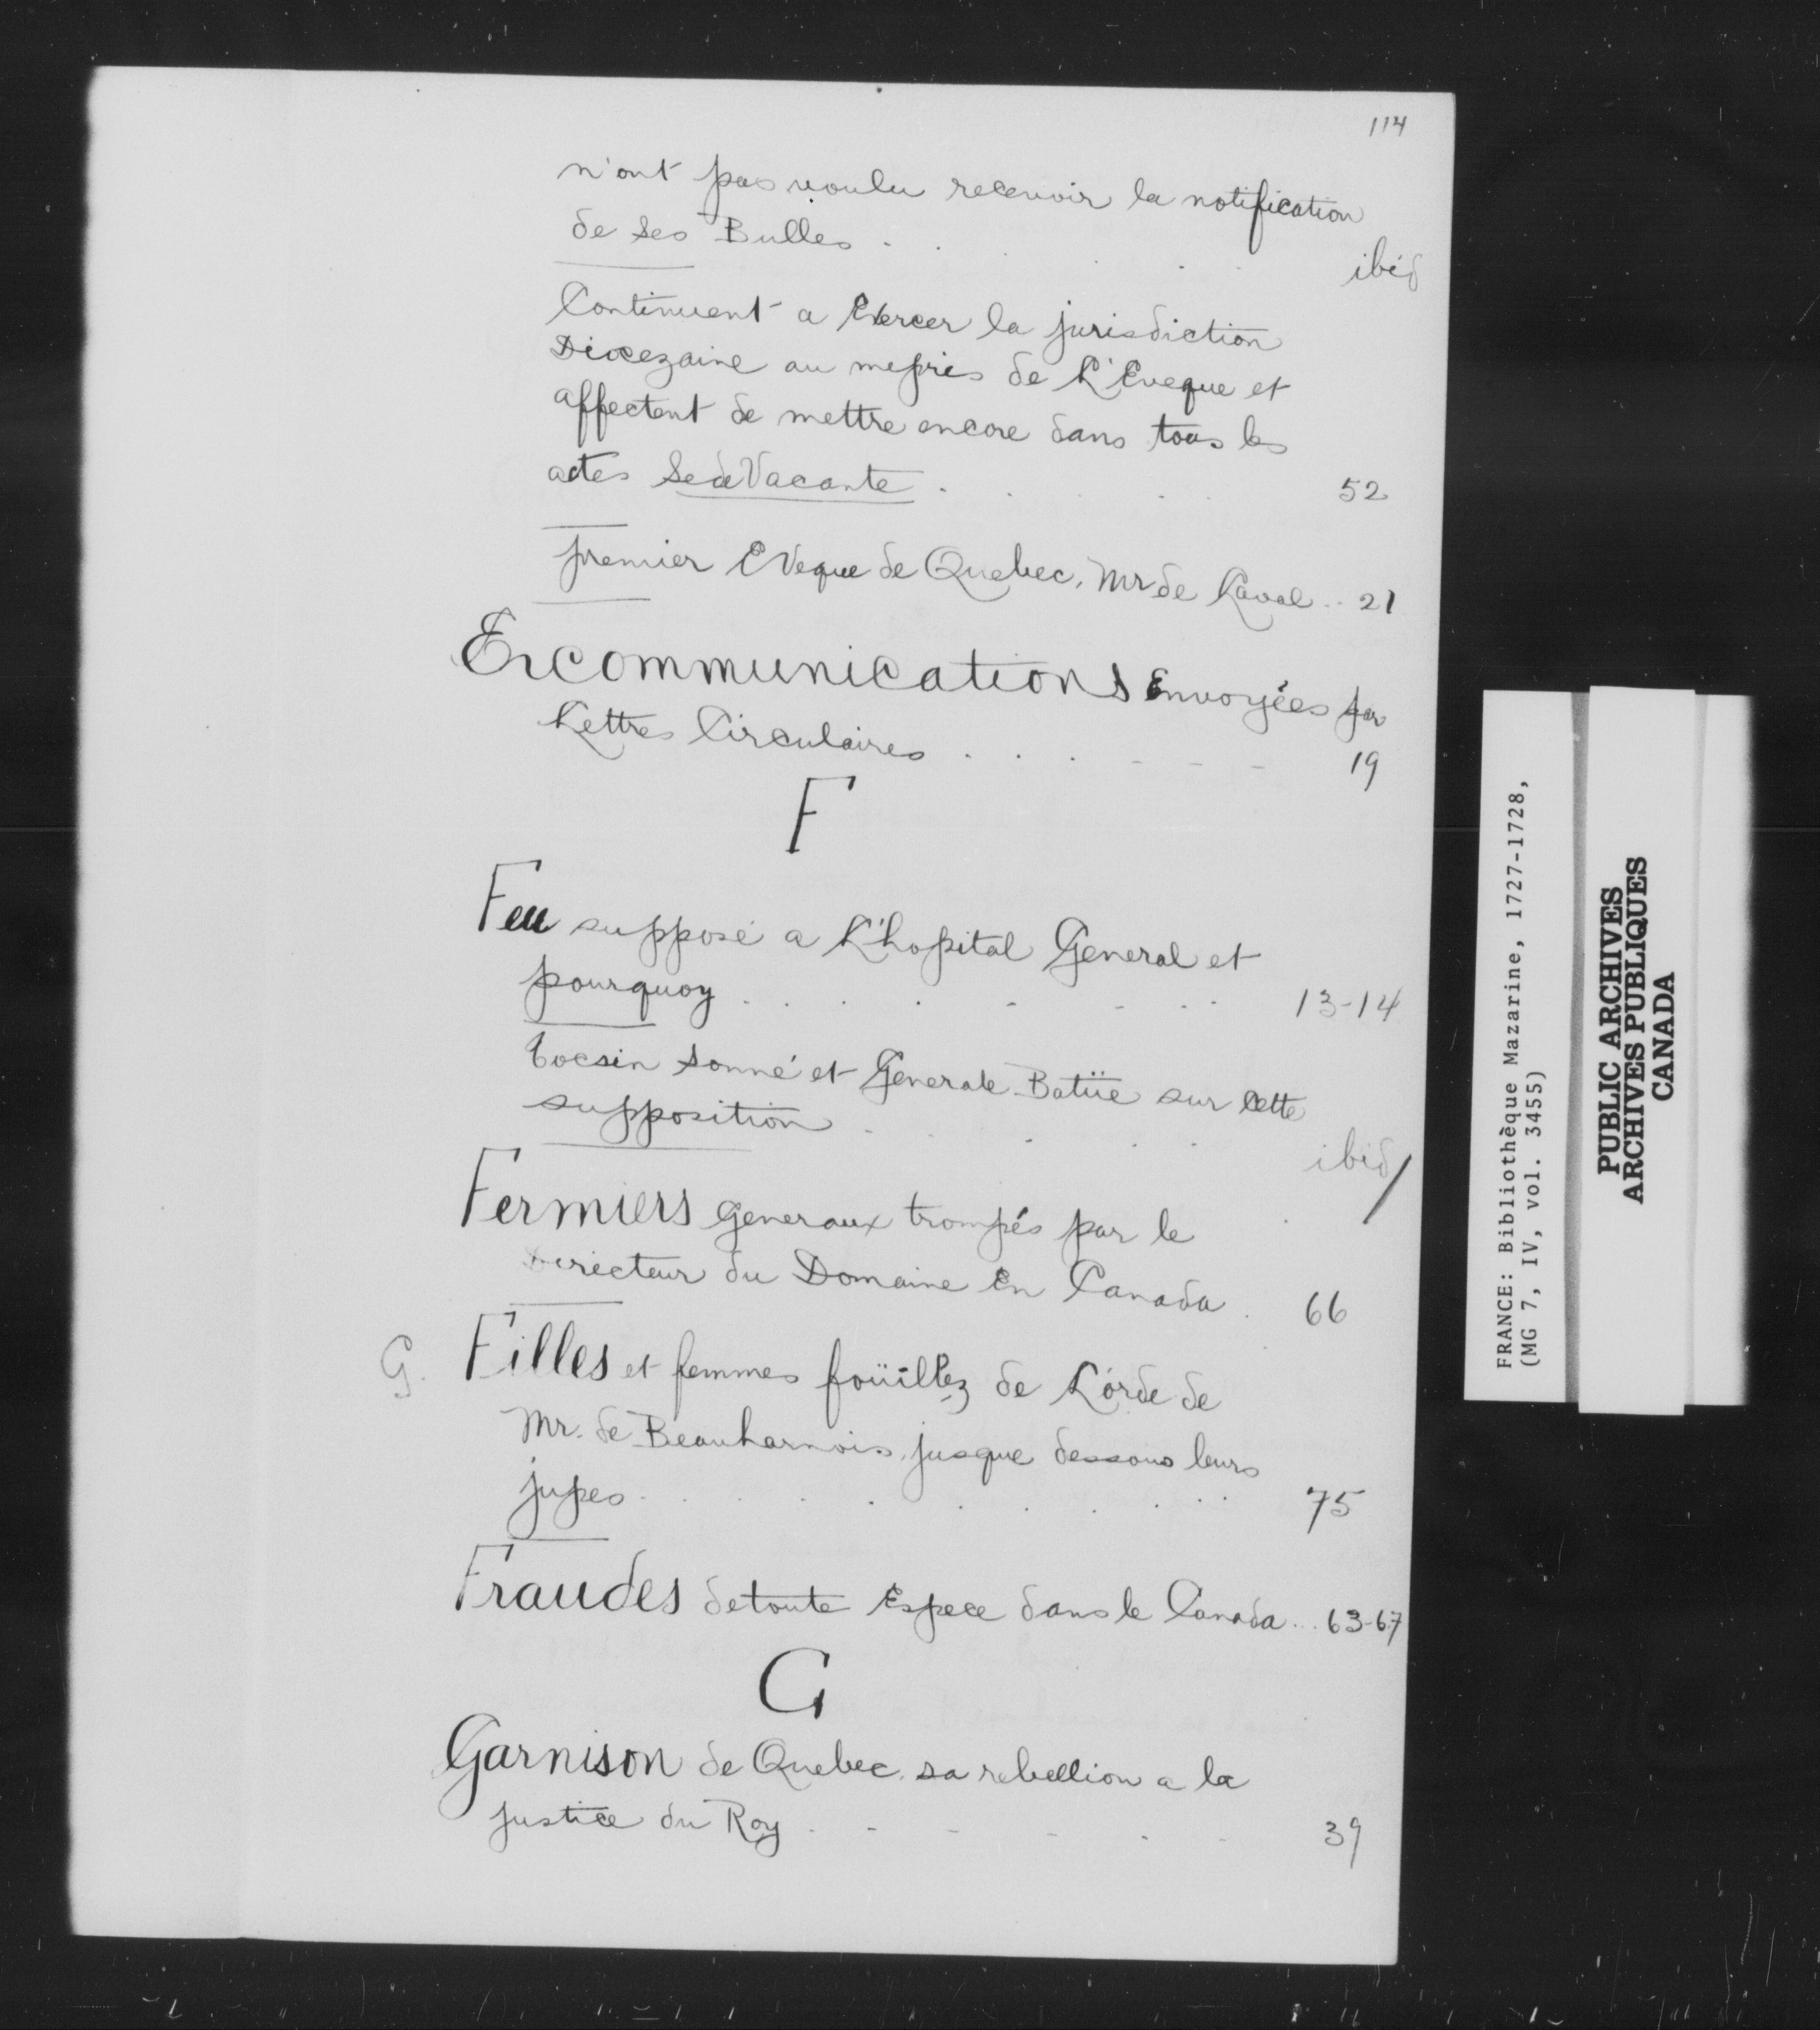 114
n'ont pas voulu recevoir la notification
de ses Bulles . . . . . ibid
Continuent a Exercer la jurisdiction
Diocezaine au mepris de L'Eveque et
affectent de mettre encore dans tous les
actes Sede Vacante . . . . . 52
premier Eveque de Quebec, Mr de Laval .. 21
Excommunications Envoyées par
Lettres Circulaires . . . - - - 19
F
Feu supposé a L'hopital General et
pourquoy . . . . - - . . 13-14
tocsin sonné et Generale Batüe sur cette
supposition . . . . . ibid/
Fermiers generaux trompés par le
Directeur du Domaine En Canada . 66
G. Filles et femmes foüillez de L'orde de
Mr. de Beauharnois, jusque dessous leurs
jupes . . . . . . . . . 75
Fraudes de toute Espece dans le Canada ... 63-67
G
Garnison de Quebec, sa rebellion a la
justice du Roy . - - - . - 39
FRANCE: Bibliothèque Mazarine, 1727-1728,
(MG 7, IV, vol. 3455)
PUBLIC ARCHIVES
ARCHIVES PUBLIQUES
CANADA